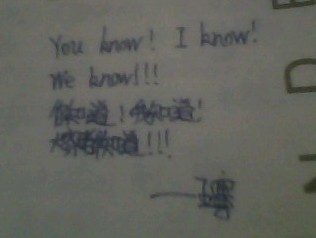 You know! I know!
We know!!!
你知道！我知道！
知道！！！